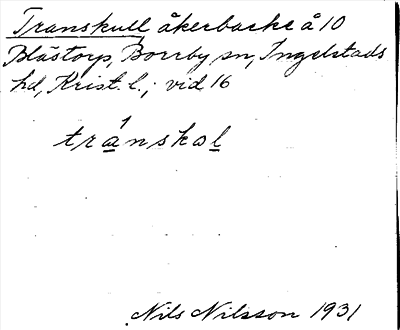 Transkull åkerbacke å 10
Blästorp, Borrby sn, Ingelstads
hd, Krist. l.; vid 16
tránskol
Nils Nilsson 1931